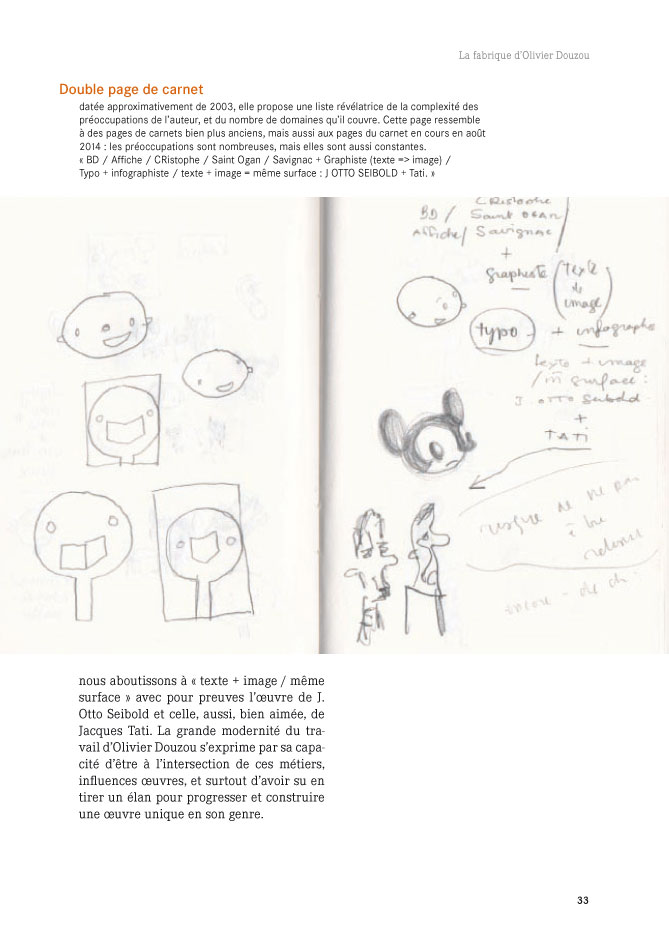 La fabrique d'Olivier Douzou
Double page de carnet
datée approximativement de 2003, elle propose une liste révélatrice de la complexité des
préoccupations de l'auteur, et du nombre de domaines qu'il couvre. Cette page ressemble
à des pages de carnets bien plus anciens, mais aussi aux pages du carnet en cours en août
2014 : les préoccupations sont nombreuses, mais elles sont aussi constantes.
« BD / Affiche / CRistophe / Saint Ogan / Savignac + Graphiste (texte => image) /
Typo + infographiste / texte + image = même surface : J OTTO SEIBOLD + Tati. »
CRistophe
BD / Saint OGAN /
Affiche / Savignac
+
graphiste (texte
image)
typo + infographe
texte + image
/ m surface :
J. OTTO Seibold
+
TATI
risque de ne pas
nous aboutissons à « texte + image / même
surface » avec pour preuves l'œuvre de J.
Otto Seibold et celle, aussi, bien aimée, de
Jacques Tati. La grande modernité du tra-
vail d'Olivier Douzou s'exprime par sa capa-
cité d'être à l'intersection de ces métiers,
influences œuvres, et surtout d'avoir su en
tirer un élan pour progresser et construire
une œuvre unique en son genre.
33